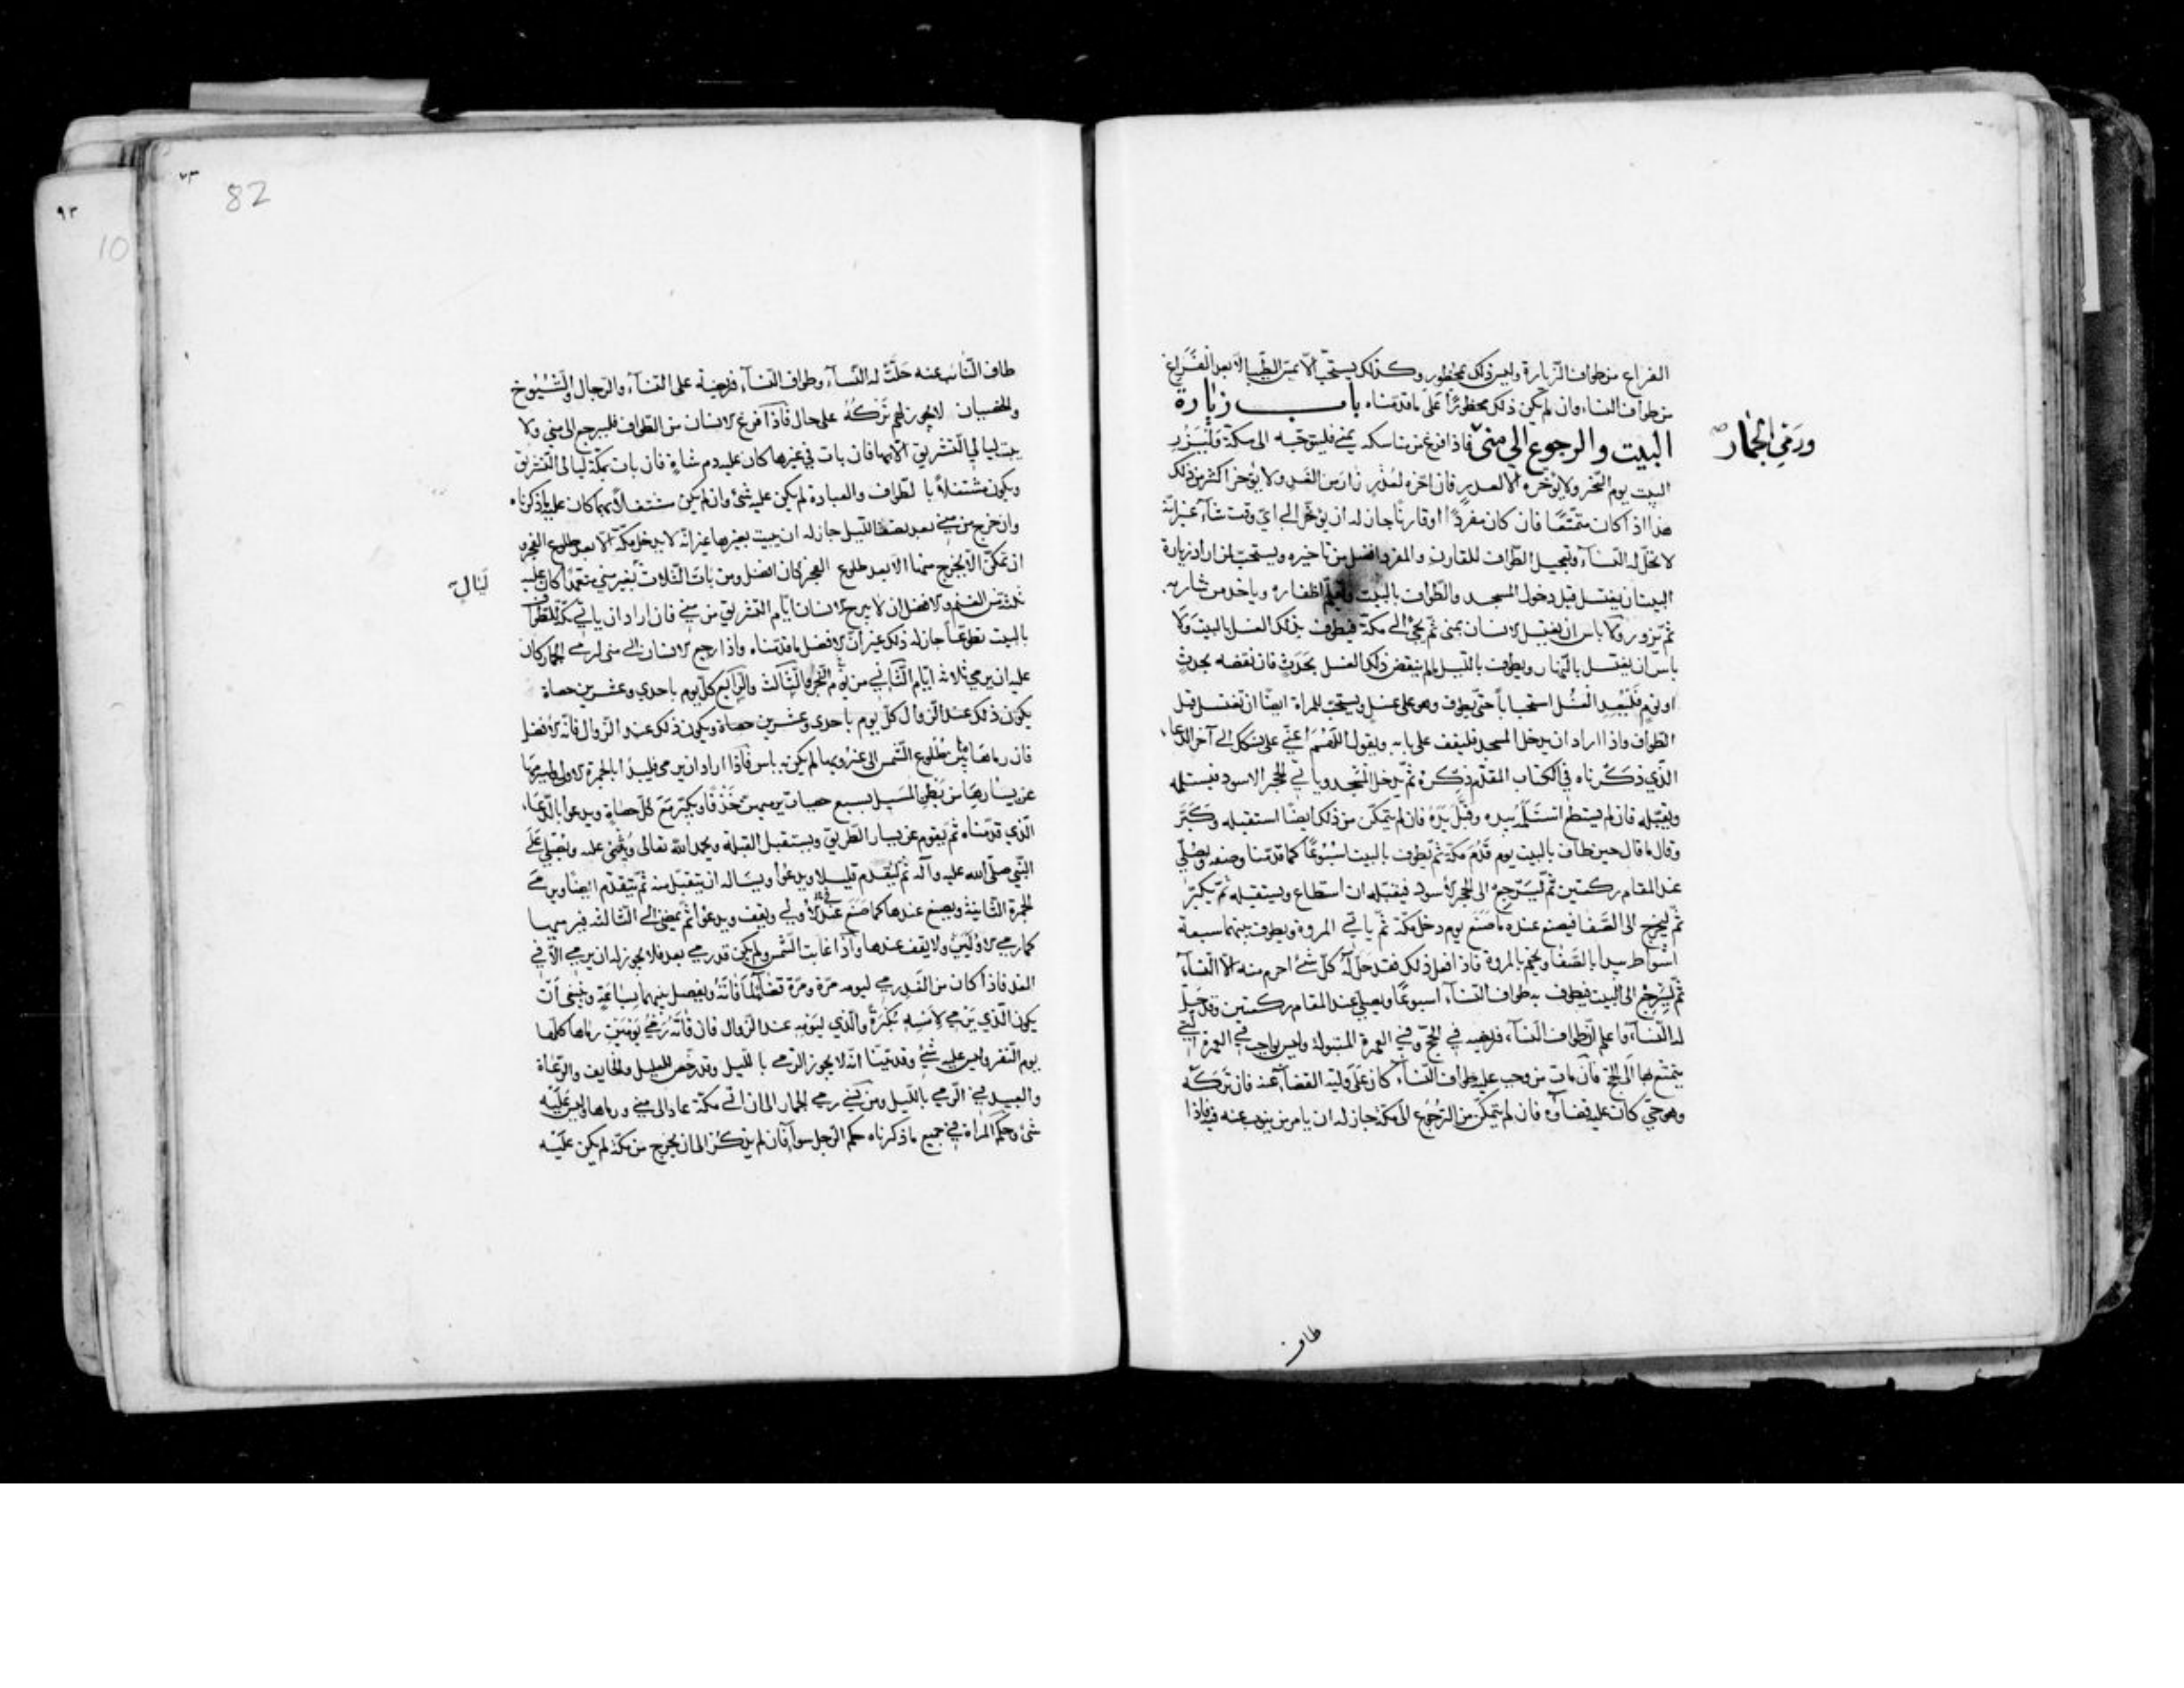 الفراغ من طواف الزيارة وليس ذلك بمحظور وكذلك يستحب الا يمس الطيب الا بعد الفراغ
من طواف النساء وان لم يكن ذلك محظوراً على ما قدمناه باب زيارة
البيت والرجوع الى منى فاذا فرغ من مناسكه بمنى فليتوجه الى مكة وليزر
ورمي الجمار صح
البيت يوم النحر ولا يؤخره الا لعذر فان اخره لعذر زار من الغد ولا يؤخر اكثر من ذلك
هذا اذا كان متمتعاً فان كان مفرداً او قارناً جاز له ان يؤخر الى اي وقت شاء غير انه
لا تحل له النساء وتعجيل الطواف للقارن والمفرد افضل من تاخيره ويستحب لمن اراد زيارة
البيت ان يغتسل قبل دخول المسجد والطواف بالبيت وتقليم اظفاره وياخذ من شاربه
ثم يزور ولا باس ان يغتسل الانسان بمنى ثم يجئ الى مكة فيطوف بذلك الغسل بالبيت ولا
باس ان يغتسل بالنهار ويطوف بالليل ما لم ينقض ذلك الغسل بحدث فان نقضه بحدث
او نوم فليعد الغسل استحباباً حتى يطوف وهو على غسل ويستحب للمراة ايضاً ان تغتسل قبل
الطواف واذا اراد ان يدخل المسجد فليقف على بابه ويقول اللهم اعني على نسكك الى آخر الدعاء
الذي ذكرناه في الكتاب المقدم ذكره ثم يدخل المسجد وياتي الحجر الاسود فيستلمه
ويقبله فان لم يستطع استلمه بيده وقبل يده فان لم يتمكن من ذلك ايضاً استقبله وكبر
وقال ما قال حين طاف بالبيت يوم قدم مكة ثم يطوف بالبيت اسبوعاً كما قدمنا وصفه ويصلي
عند المقام ركعتين ثم ليرجع الى الحجر الاسود فيقبله ان استطاع ويستقبله ثم يكبر
ثم ليخرج الى الصفا فيصنع عنده ما صنع يوم دخل مكة ثم ياتي المروة ويطوف بينهما سبعة
اشواط يبدا بالصفا ويختم بالمروة فاذا فعل ذلك فقد حل له كل شئ احرم منه الا النساء
ثم ليرجع الى البيت فيطوف به طواف النساء اسبوعاً ويصلي عند المقام ركعتين وقد حل
له النساء واعلم ان طواف النساء فريضة في الحج وفي العمرة المبتولة وليس بواجب في العمرة التي
يتمتع بها الى الحج فان مات من وجب عليه طواف النساء كان على وليه القضاء عنه فان تركه
وهو حي كان عليه قضاؤه فان لم يتمكن من الرجوع الى مكة جاز له ان يامر من ينوب عنه فيه فاذا
طاف
٧٣
82
٩٣
10
طاف النائب عنه حلت له النساء وطواف النساء فريضة على النساء والرجال والشيوخ
والخصيان لا يجوز لهم تركه على حال فاذا فرغ الانسان من الطواف فليرجع الى منى ولا
يبت ليالي التشريق الا بها فان بات في غيرها كان عليه دم شاة فان بات بمكة ليالي التشريق
ويكون مشتغلاً بالطواف والعبادة لم يكن عليه شئ وان لم يكن مشتغلاً بهما كان عليه ما ذكرناه
وان خرج من منى بعد نصف الليل جاز له ان يبيت بغيرها غير انه لا يدخل مكة الا بعد طلوع الفجر و
ان تمكن الا يخرج منها الا بعد طلوع الفجر كان افضل ومن بات الثلاث بغير منى متعمداً كان عليه
ليال
ثلثة من الغنم والافضل ان لا يبرح الانسان ايام التشريق من منى فان اراد ان ياتي مكة للطواف
بالبيت تطوعاً جاز له ذلك غير ان الافضل ما قدمناه واذا رجع الانسان الى منى لرمي الجمار كان
عليه ان يرمي ثلاثة ايام الثاني من يوم النحر والثالث والرابع كل يوم باحدي وعشرين حصاة
يكون ذلك عند الزوال كل يوم باحدى وعشرين حصاة ويكون ذلك عند الزوال فانه الافضل
فان رماها بين طلوع الشمس الى غروبها لم يكن به باس فاذا اراد ان يرمي فليبدا بالجمرة الاولى وليرمها
عن يسارها من بطن المسيل بسبع حصيات يرميهن خذفاً ويكبر مع كل حصاة ويدعوا بالدعاء
الذي قدمناه ثم يقوم عن يسار الطريق ويستقبل القبلة ويحمد الله تعالى ويثني عليه ويصلي على
النبي صلى الله عليه وآله ثم ليتقدم قليلا ويدعوا ويساله ان يتقبل منه ثم يتقدم ايضاً ويرمي
الجمرة الثانية ويصنع عندها كما صنع عند الاولى ويقف ويدعوا ثم يمضي الى الثالثة فيرميها
كما رمي الاوليين ولا يقف عندها واذا غابت الشمس ولم يكن قد رمي بعد فلا يجوز له ان يرمي الا في
الغد فاذا كان من الغد رمي ليومه مرة ومرة قضاء لما فاته ويفصل بينهما بساعة وينبغي ان
يكون الذي يرمي لامسه بكرة والذي ليومه عند الزوال فان فاته رمي يومين رماها كلها
يوم النفر وليس عليه شئ وقد بينا انه لا يجوز الرمي بالليل وقد رخص للعليل والخايف والرعاة
والعبيد في الرمي بالليل ومن نسي رمي الجمار الى ان اتى مكة عاد الى منى ورماها وليس عليه
شئ وحكم المراة في جميع ما ذكرناه حكم الرجل سواء فان لم يذكر الى ان يخرج من مكة لم يكن عليه